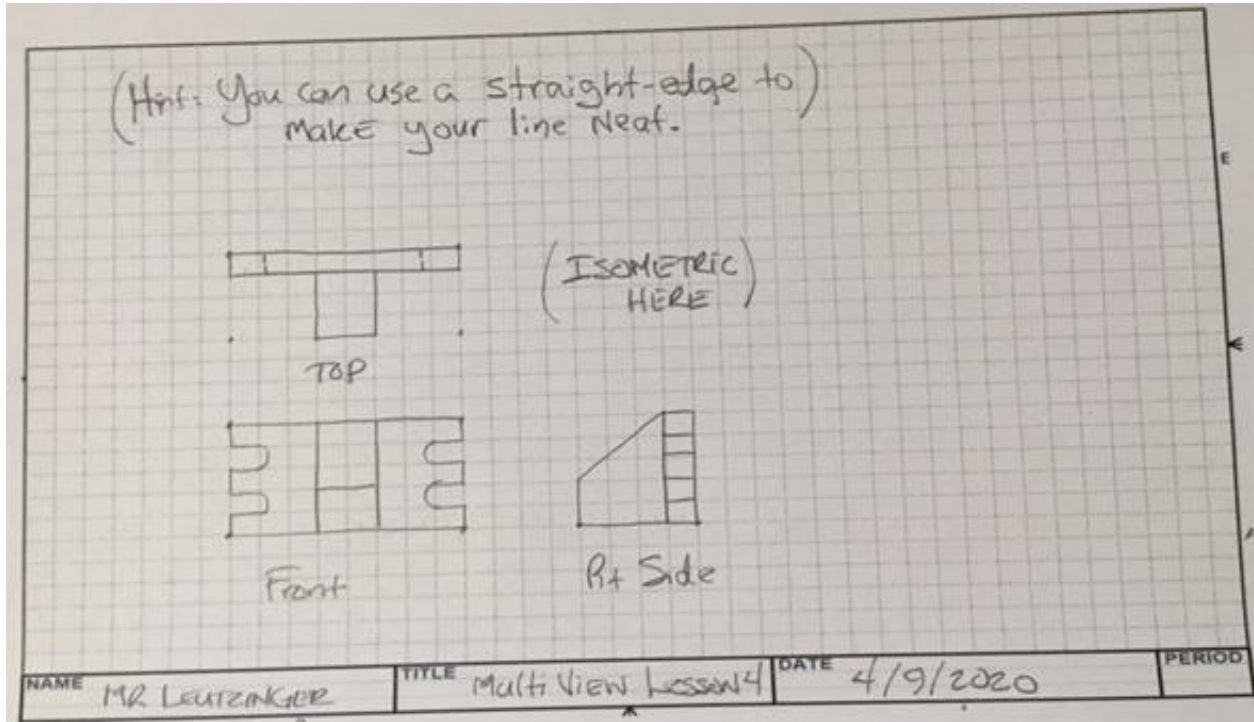 (Hint: You can use a straight-edge to)
make your line Neat.
E
(ISOMETRIC
HERE)
TOP
Front
Rt Side
NAME MR LEUTZINGER TITLE Multi View Lesson 4 DATE 4/9/2020 PERIOD